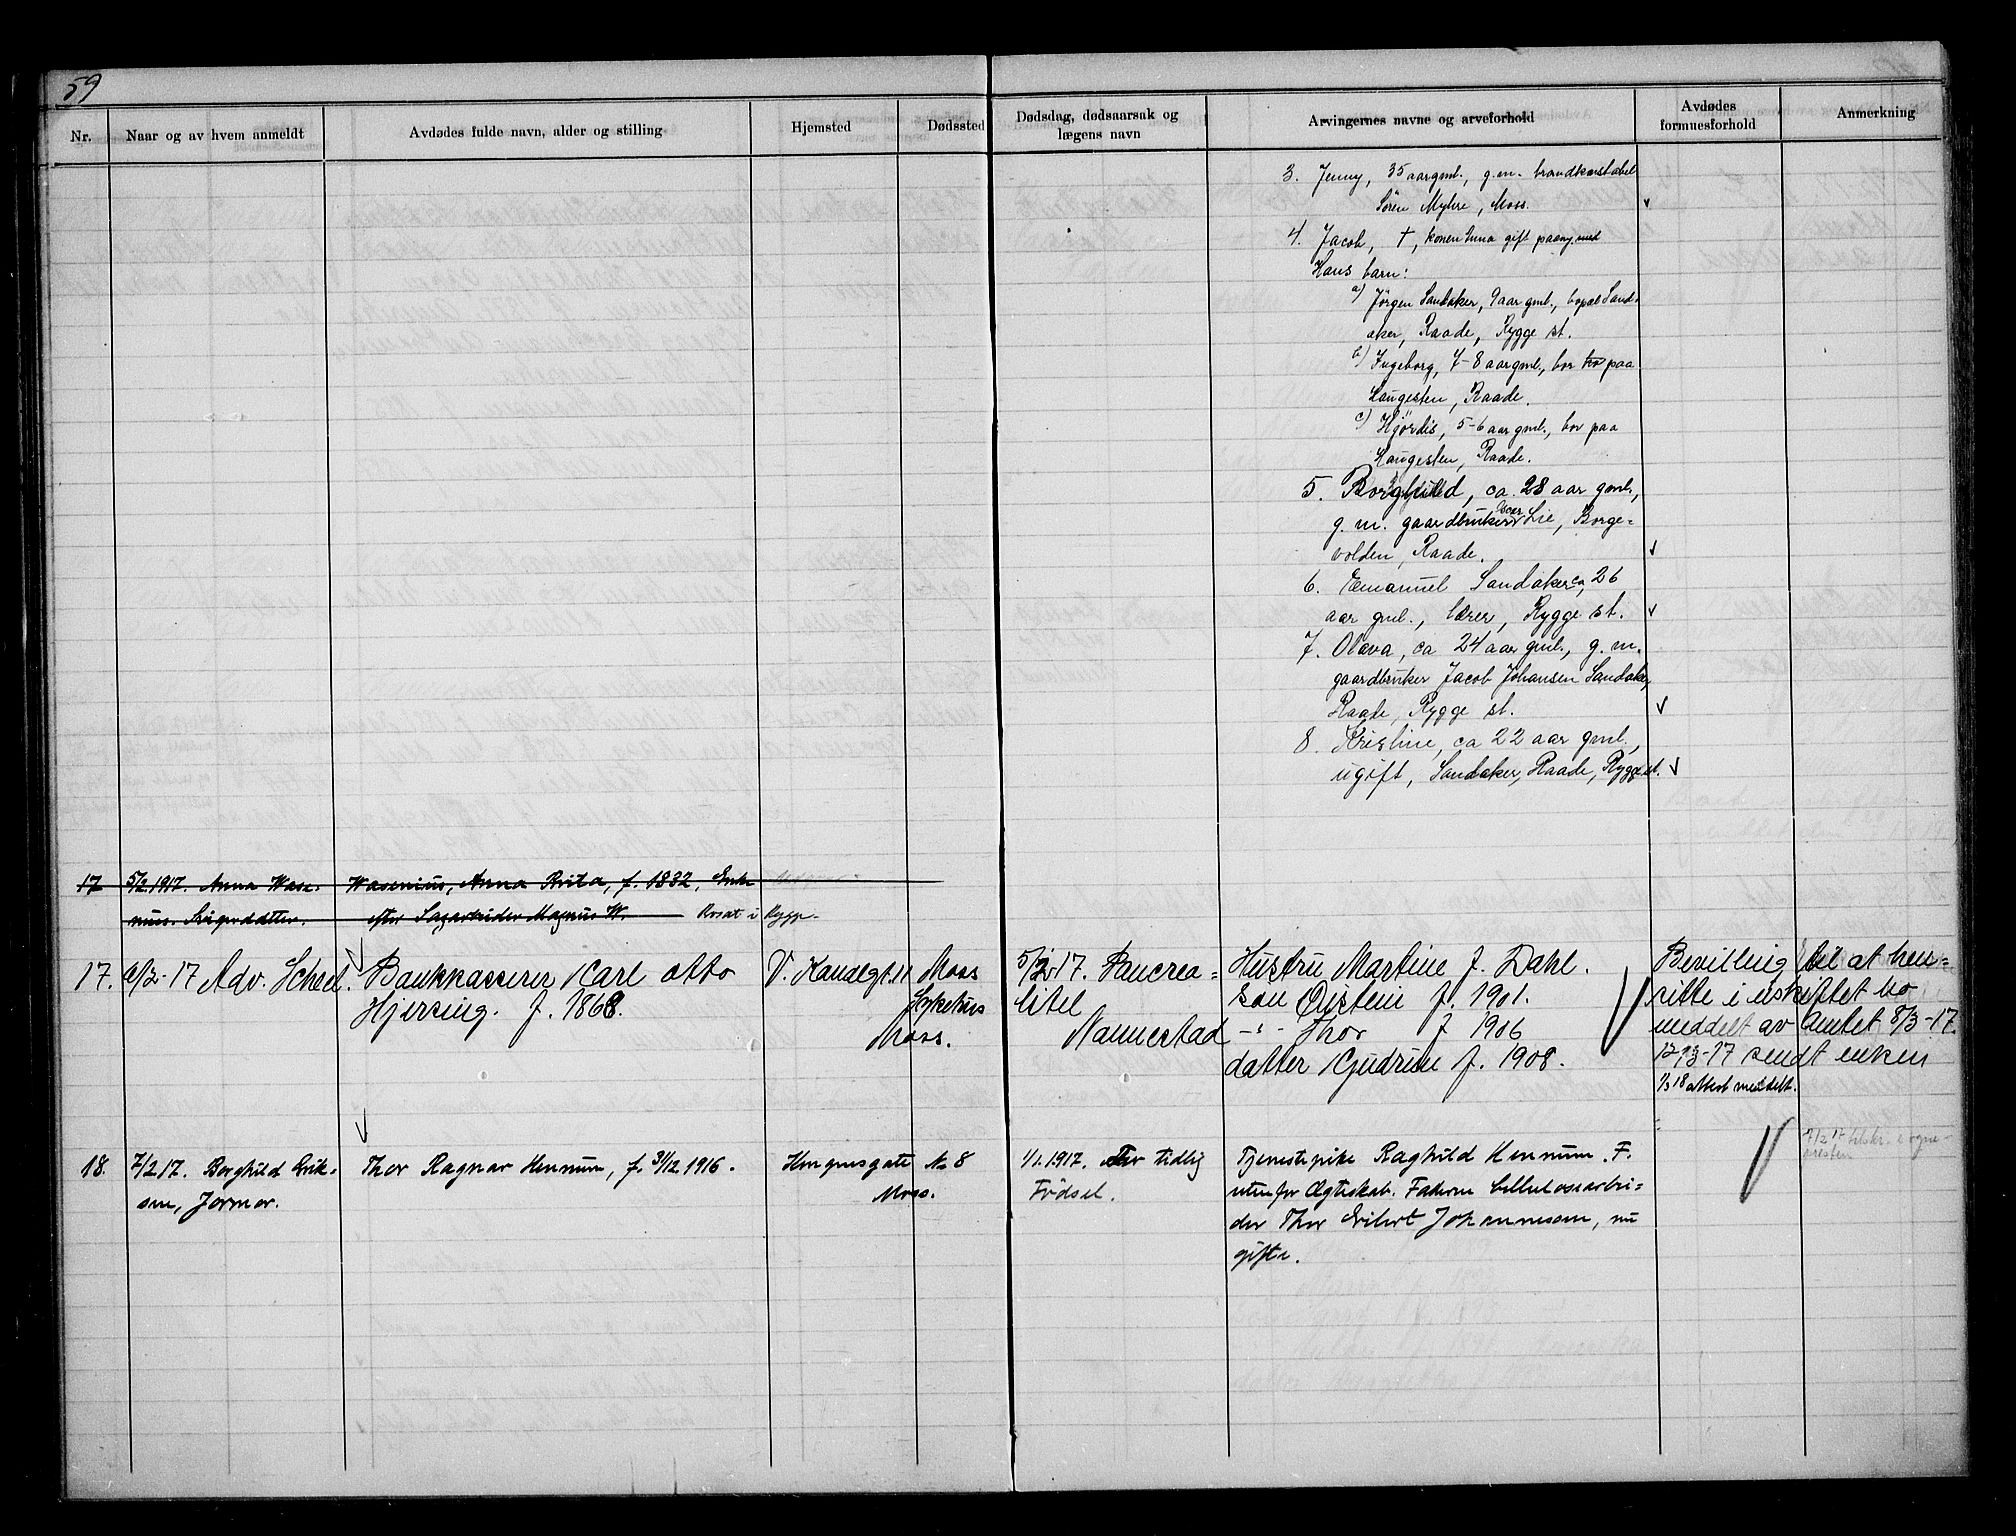 59
Nr.
Naar og av hvem anmeldt
Avdødes fulde navn, alder og stilling
Hjemsted
Dødssted
Dødsdag, dødsaarsak og
lægens navn
Arvingernes navne og arveforhold
Avdødes
formuesforhold
Anmerkning
3. Jenny, 35 aar gml., g.m. brandkonstabel
Sören Myhre, Moss.
4. Jacob, †, konen Anna gift paany med
Hans barn:
a) Jörgen Sandaker, 9 aar gml., bopæl Sand-
aker, Raade, Rygge st.
b) Ingeborg, 7-8 aar gml., bor paa
Haugesten, Raade.
c) Hjördis, 5-6 aar gml., bor paa
Haugesten, Raade.
5. Borghild, ca. 28 aar gml.,
g.m. gaardbruker Oscar Lie, Borge-
volden, Raade.
6. Emanuel Sandaker, ca 26
aar gml., lærer, Rygge st.
7. Olava, ca 24 aar gml., g.m.
gaardbruker Jacob Johansen Sandaker,
Raade, Rygge st.
8. Kristine, ca 22 aar gml.,
ugift, Sandaker, Raade, Rygge st.
17 5/2 1917. Anna Wase- Wasenius, Anna Brita, f. 1832, Enke
nius. Svigerdatter. efter Sagarbeider Magnus W. Bosat i Rygge.
17. 6/2-17 Adv. Scheel. Bankkasserer Karl Otto V. Kanalgt. 11 Moss 5/2-17. Pancrea- Hustru Martine f. Dahl. Bevilling til at hen-
Hjersing. f. 1868. Sykehus titet Søn Øistein f. 1901. sitte i uskiftet bo
Moss. Nannestad -"- Thor f 1906 meddelt av Amtet 8/3-17.
datter Gudrun f. 1908. 12/3-17 sendt enken
1/3 18 attest meddelt.
18. 7/2 17. Borghild Erik- Thor Ragnar Hennum, f. 31/12 1916. Kongensgate No 8 1/1. 1917. For tidlig Tjenestepike Raghild Hennum. F.
sen, Jormor. Moss. Fødsel. utenfor Ægteskab. Faderen cellulosearbei-
der Thor Eilert Johannesen, nu
gifte.
7/2 17 tilskr. sogne-
presten